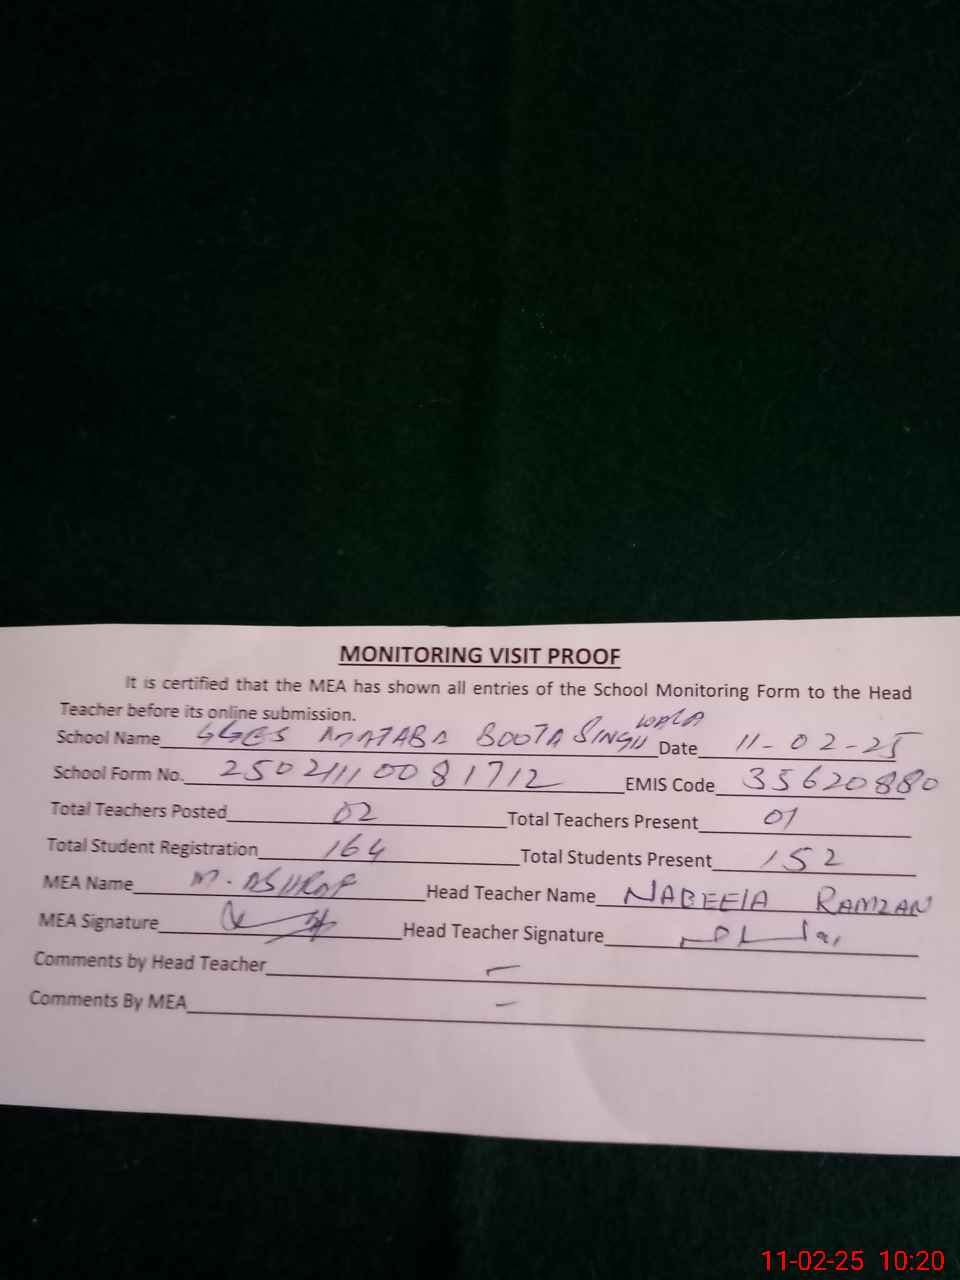 MONITORING VISIT PROOF
It is certified that the MEA has shown all entries of the School Monitoring Form to the Head
Teacher before its online submission.
School Name GGES BOOTA SINGH WALA Date 11-02-25
School Form No. 250211110081712 EMIS Code 35620880
Total Teachers Posted 02 Total Teachers Present 01
Total Student Registration 164 Total Students Present 152
MEA Name M. ASHRAF Head Teacher Name NABEELA RAMZAN
MEA Signature Head Teacher Signature
Comments by Head Teacher -
Comments By MEA -
11-02-25 10:20